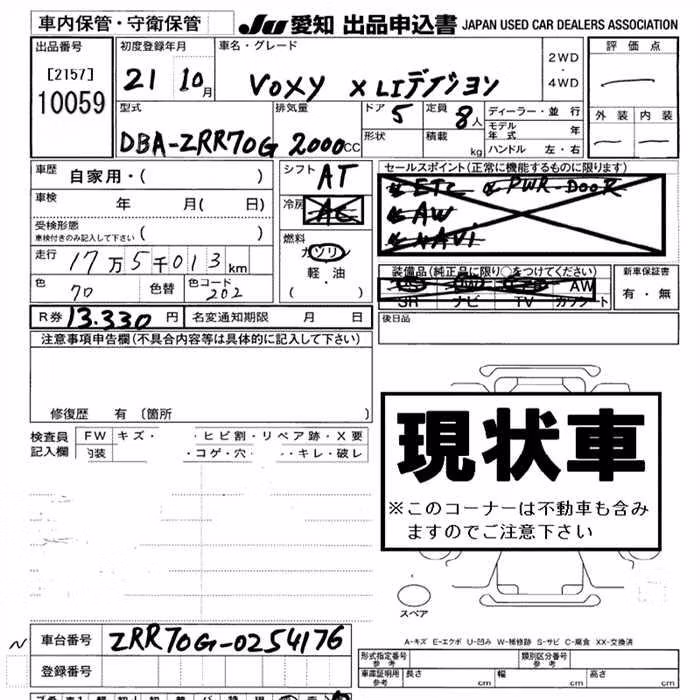 車内保管・守衛保管 JU 愛知 出品申込書 JAPAN USED CAR DEALERS ASSOCIATION
出品番号 初度登録年月 車名・グレード 評価点
[2157] 21 10月 VOXY X LIエディション 2WD・4WD
10059
型式 排気量 ドア 5 定員 8人 ディーラー・並行 外装 内装
DBA-ZRR70G 2000CC 形状 積載 kg モデル年式 年
ハンドル 左・右
車歴 自家用・( ) シフト AT セールスポイント(正常に機能するものに限ります)
車検 年 月( 日) 冷房 AC ETC PWR-DOOR
AW
受検形態 車検付きのみ記入して下さい ( ) NAVI
走行 17万5千013km 燃料 ガソリン 装備品(純正品に限り○をつけてください) 新車保証書
軽・油 AW 有・無
色 70 色替 色コード 202 ( ) SR ナビ TV カワシート
R券 13.330円 名変通知期限 月 日 後日品
注意事項申告欄(不具合内容等は具体的に記入して下さい)
修復歴 有 〔箇所 〕
現状車
※このコーナーは不動車も含み
ますのでご注意下さい
検査員 FW キズ・ ・ヒビ割・リペア跡・X要
記入欄 内装 ・コゲ・穴 ・キレ・破レ
スペア
A-キズ E-エクボ U-凹み W-補修跡 S-サビ C-腐食 XX-交換済
車台番号 ZRR70G-0254176
登録番号
形式指定番号 参考 類別区分番号 参考
車庫証明用 参考 長さ cm 幅 cm 高さ cm